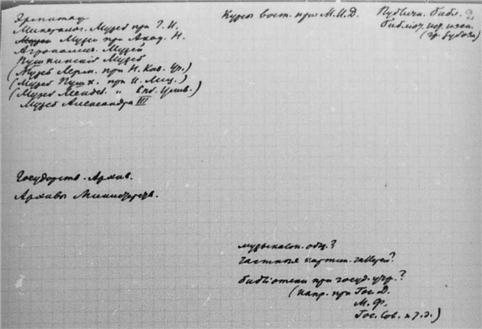 Эрмитаж
Минералог. Музей при Г. И.
Музеи при Акад. Н.
Агрономич. Музей
Пушкинский Музей
(Музей Лерм. при Н. Кав. Уч.)
(Музей Пушк. при И. Лиц.)
(Музей Менд. " Спб. Унив.)
Музей Александра III
Курсы вост. при М.И.Д.
Публичн. библ.
библиот. иер. изд.
(гр. Зубова)
Государств. Архив.
Архивы Министерств.
музыкальн. общ.?
частныя картин. галлереи?
библіотеки при госуд. учр.?
(напр. при Гос. Д.
М. Ф.
Гос. Сов. и т. д.)